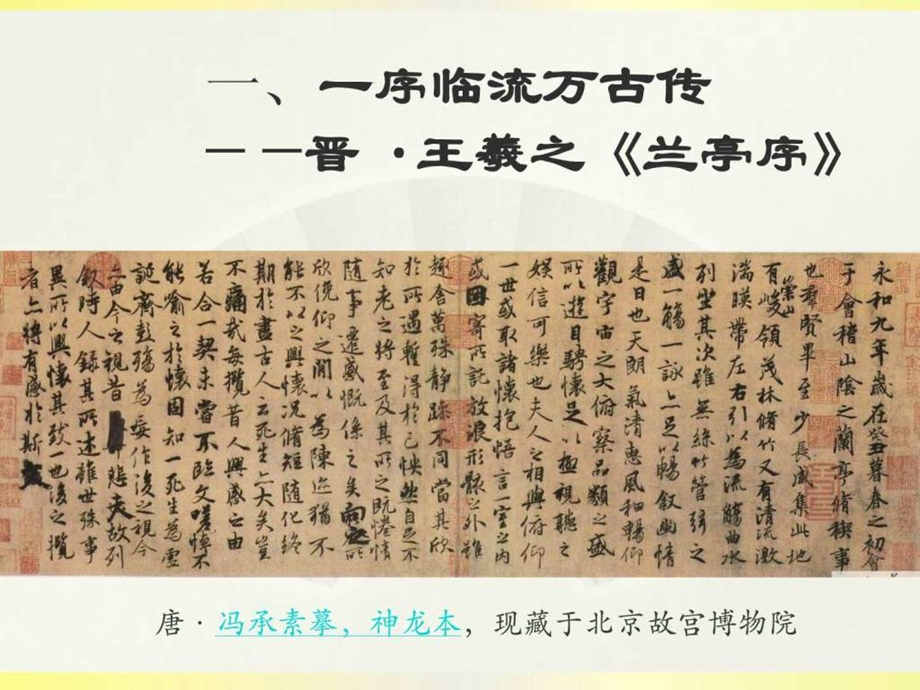 一、一序临流万古传
——晋·王羲之《兰亭序》
永和九年歲在癸丑暮春之初會
于會稽山陰之蘭亭脩稧事
也群賢畢至少長咸集此地
有崇山峻領茂林脩竹又有清流激
湍暎帶左右引以為流觴曲水
列坐其次雖無絲竹管弦之
盛一觴一詠亦足以暢敘幽情
是日也天朗氣清惠風和暢仰
觀宇宙之大俯察品類之盛
所以遊目騁懷足以極視聽之
娛信可樂也夫人之相與俯仰
一世或取諸懷抱悟言一室之內
或因寄所託放浪形骸之外雖
趣舍萬殊靜躁不同當其欣
於所遇蹔得於己怏然自足不
知老之將至及其所之既惓情
隨事遷感慨係之矣向之所
欣俛仰之閒以為陳迹猶不
能不以之興懷況脩短隨化終
期於盡古人云死生亦大矣豈
不痛哉每攬昔人興感之由
若合一契未嘗不臨文嗟悼不
能喻之於懷固知一死生為虛
誕齊彭殤為妄作後之視今
亦由今之視昔悲夫故列
敘時人錄其所述雖世殊事
異所以興懷其致一也後之攬
者亦將有感於斯文
唐·冯承素摹，神龙本，现藏于北京故宫博物院